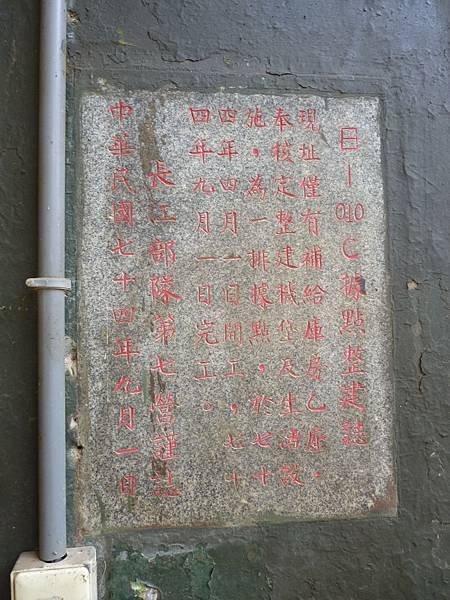 E-010C據點整建誌
現址僅有補給庫房乙座,
奉核定整建機堡及生活設
施,為一排據點,於七十
四年四月一日開工,七十
四年九月一日完工。
長江部隊第七營謹誌
中華民國七十四年九月一日